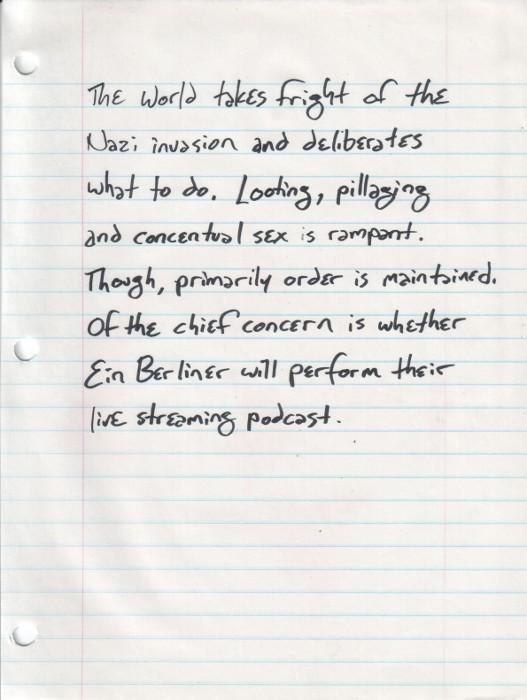 The World takes fright of the
Nazi invasion and deliberates
what to do. Looting, pillaging
and concentual sex is rampant.
Though, primarily order is maintained.
Of the chief concern is whether
Ein Berliner will perform their
live streaming podcast.